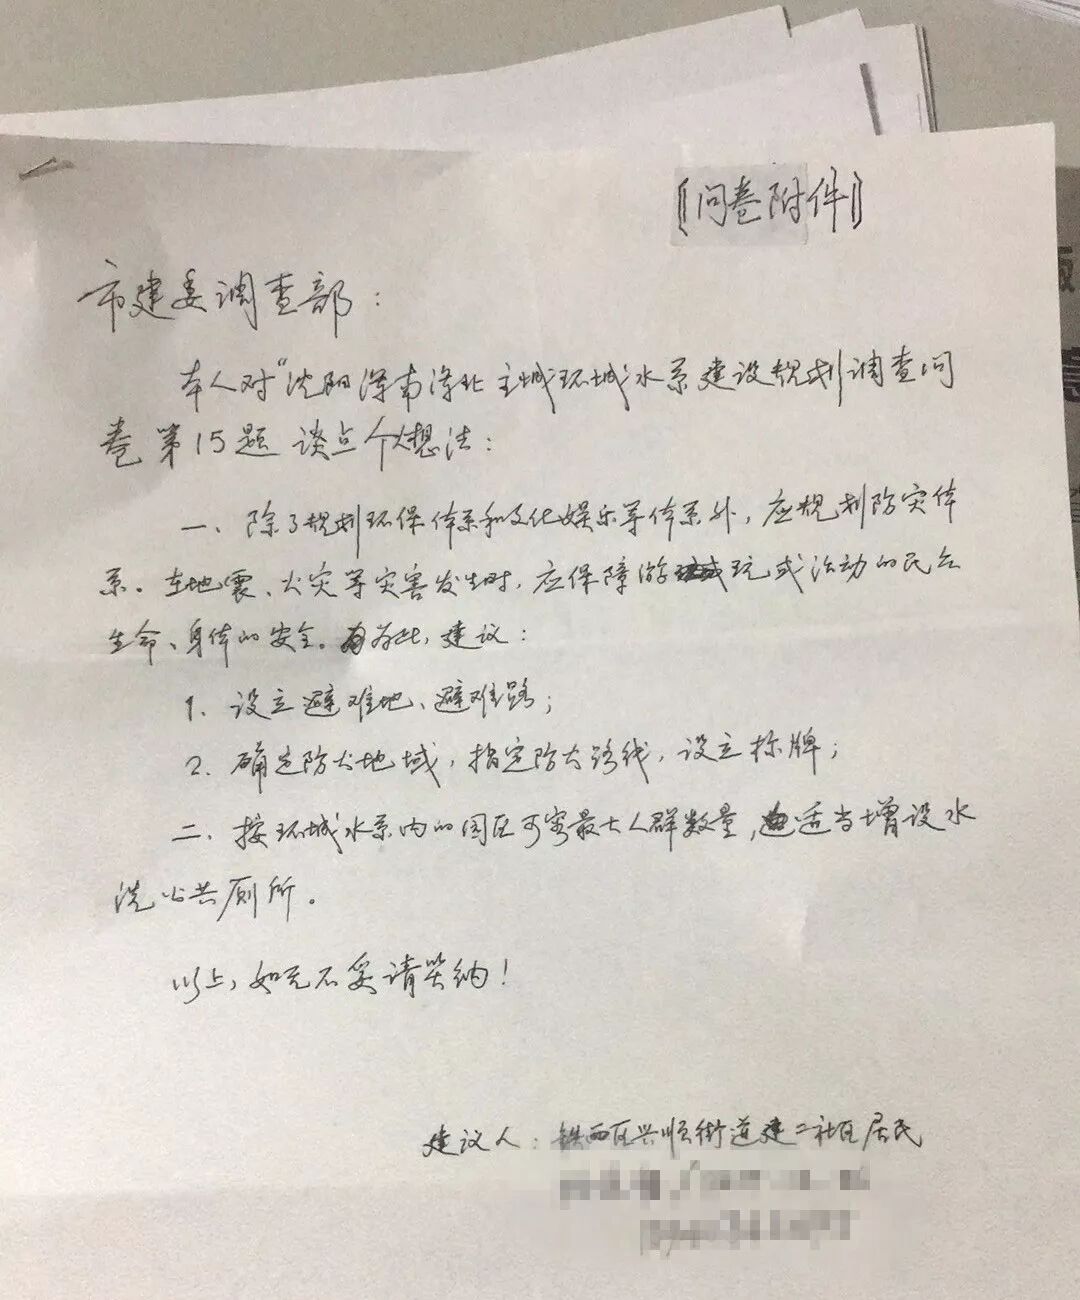 《问卷附件》
市建委调查部：
本人对“沈阳浑南浑北主城环城水系建设规划调查问
卷第15题谈点个人想法：
一、除了规划环保体系和文化娱乐等体系外，应规划防灾体
系。在地震、火灾等灾害发生时，应保障游玩或活动的民众
生命、身体的安全。为此，建议：
1、设立避难地、避难路；
2、确定防火地域，指定防火路线，设立标牌；
二、按环城水系内的园区可容最大人群数量，适当增设水
洗公共厕所。
以上，如无不妥请笑纳！
建议人：铁西区兴顺街道建二社区居民